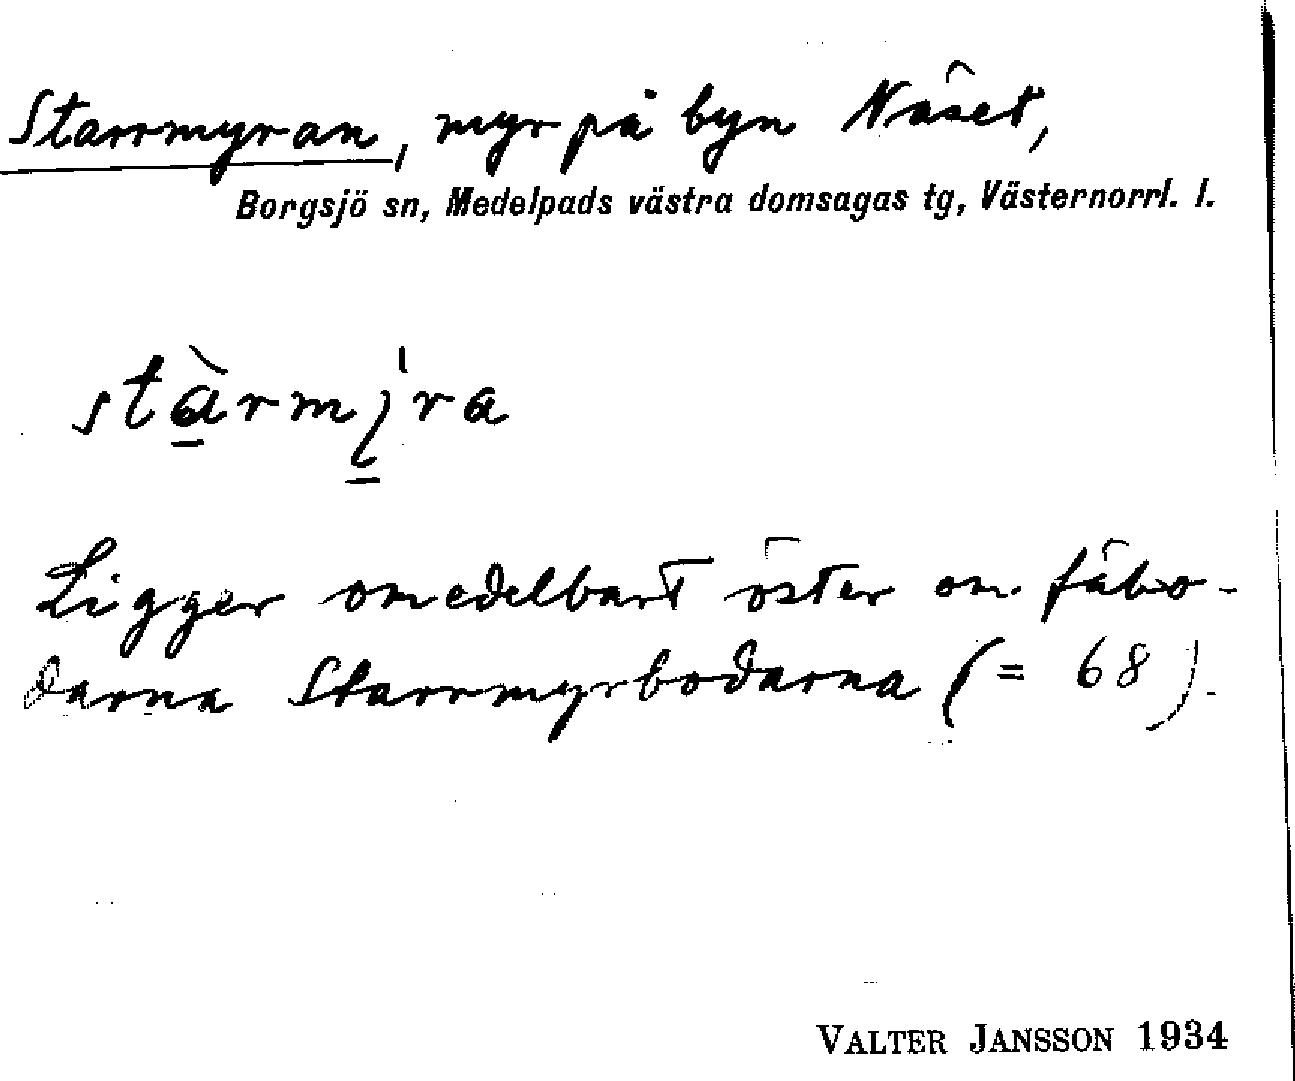 Starrmyran, myr på byn Näset,
Borgsjö sn, Medelpads västra domsagas tg, Västernorrl. l.
stàrmı̨̍ra
Ligger omedelbart öster om fäbo-
darna Starrmyrbodarna (= 68).
VALTER JANSSON 1934